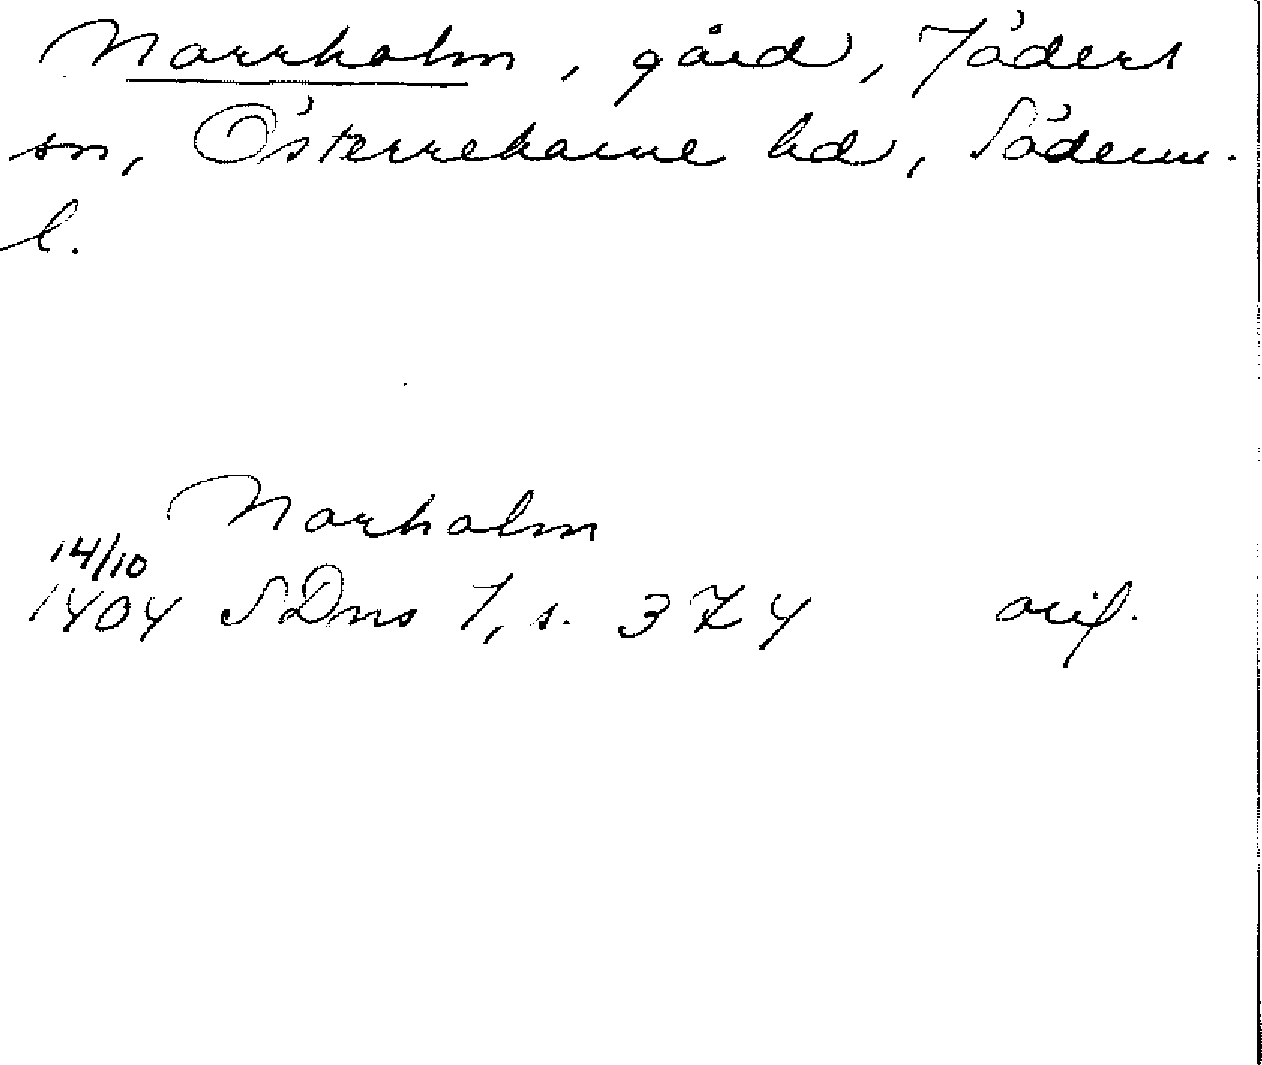 Norrholm, gård, Jäders
sn, Österrekarne hd, Söderm.
l.
Norholm
14/10
1404 SDns 1, s. 374 orig.